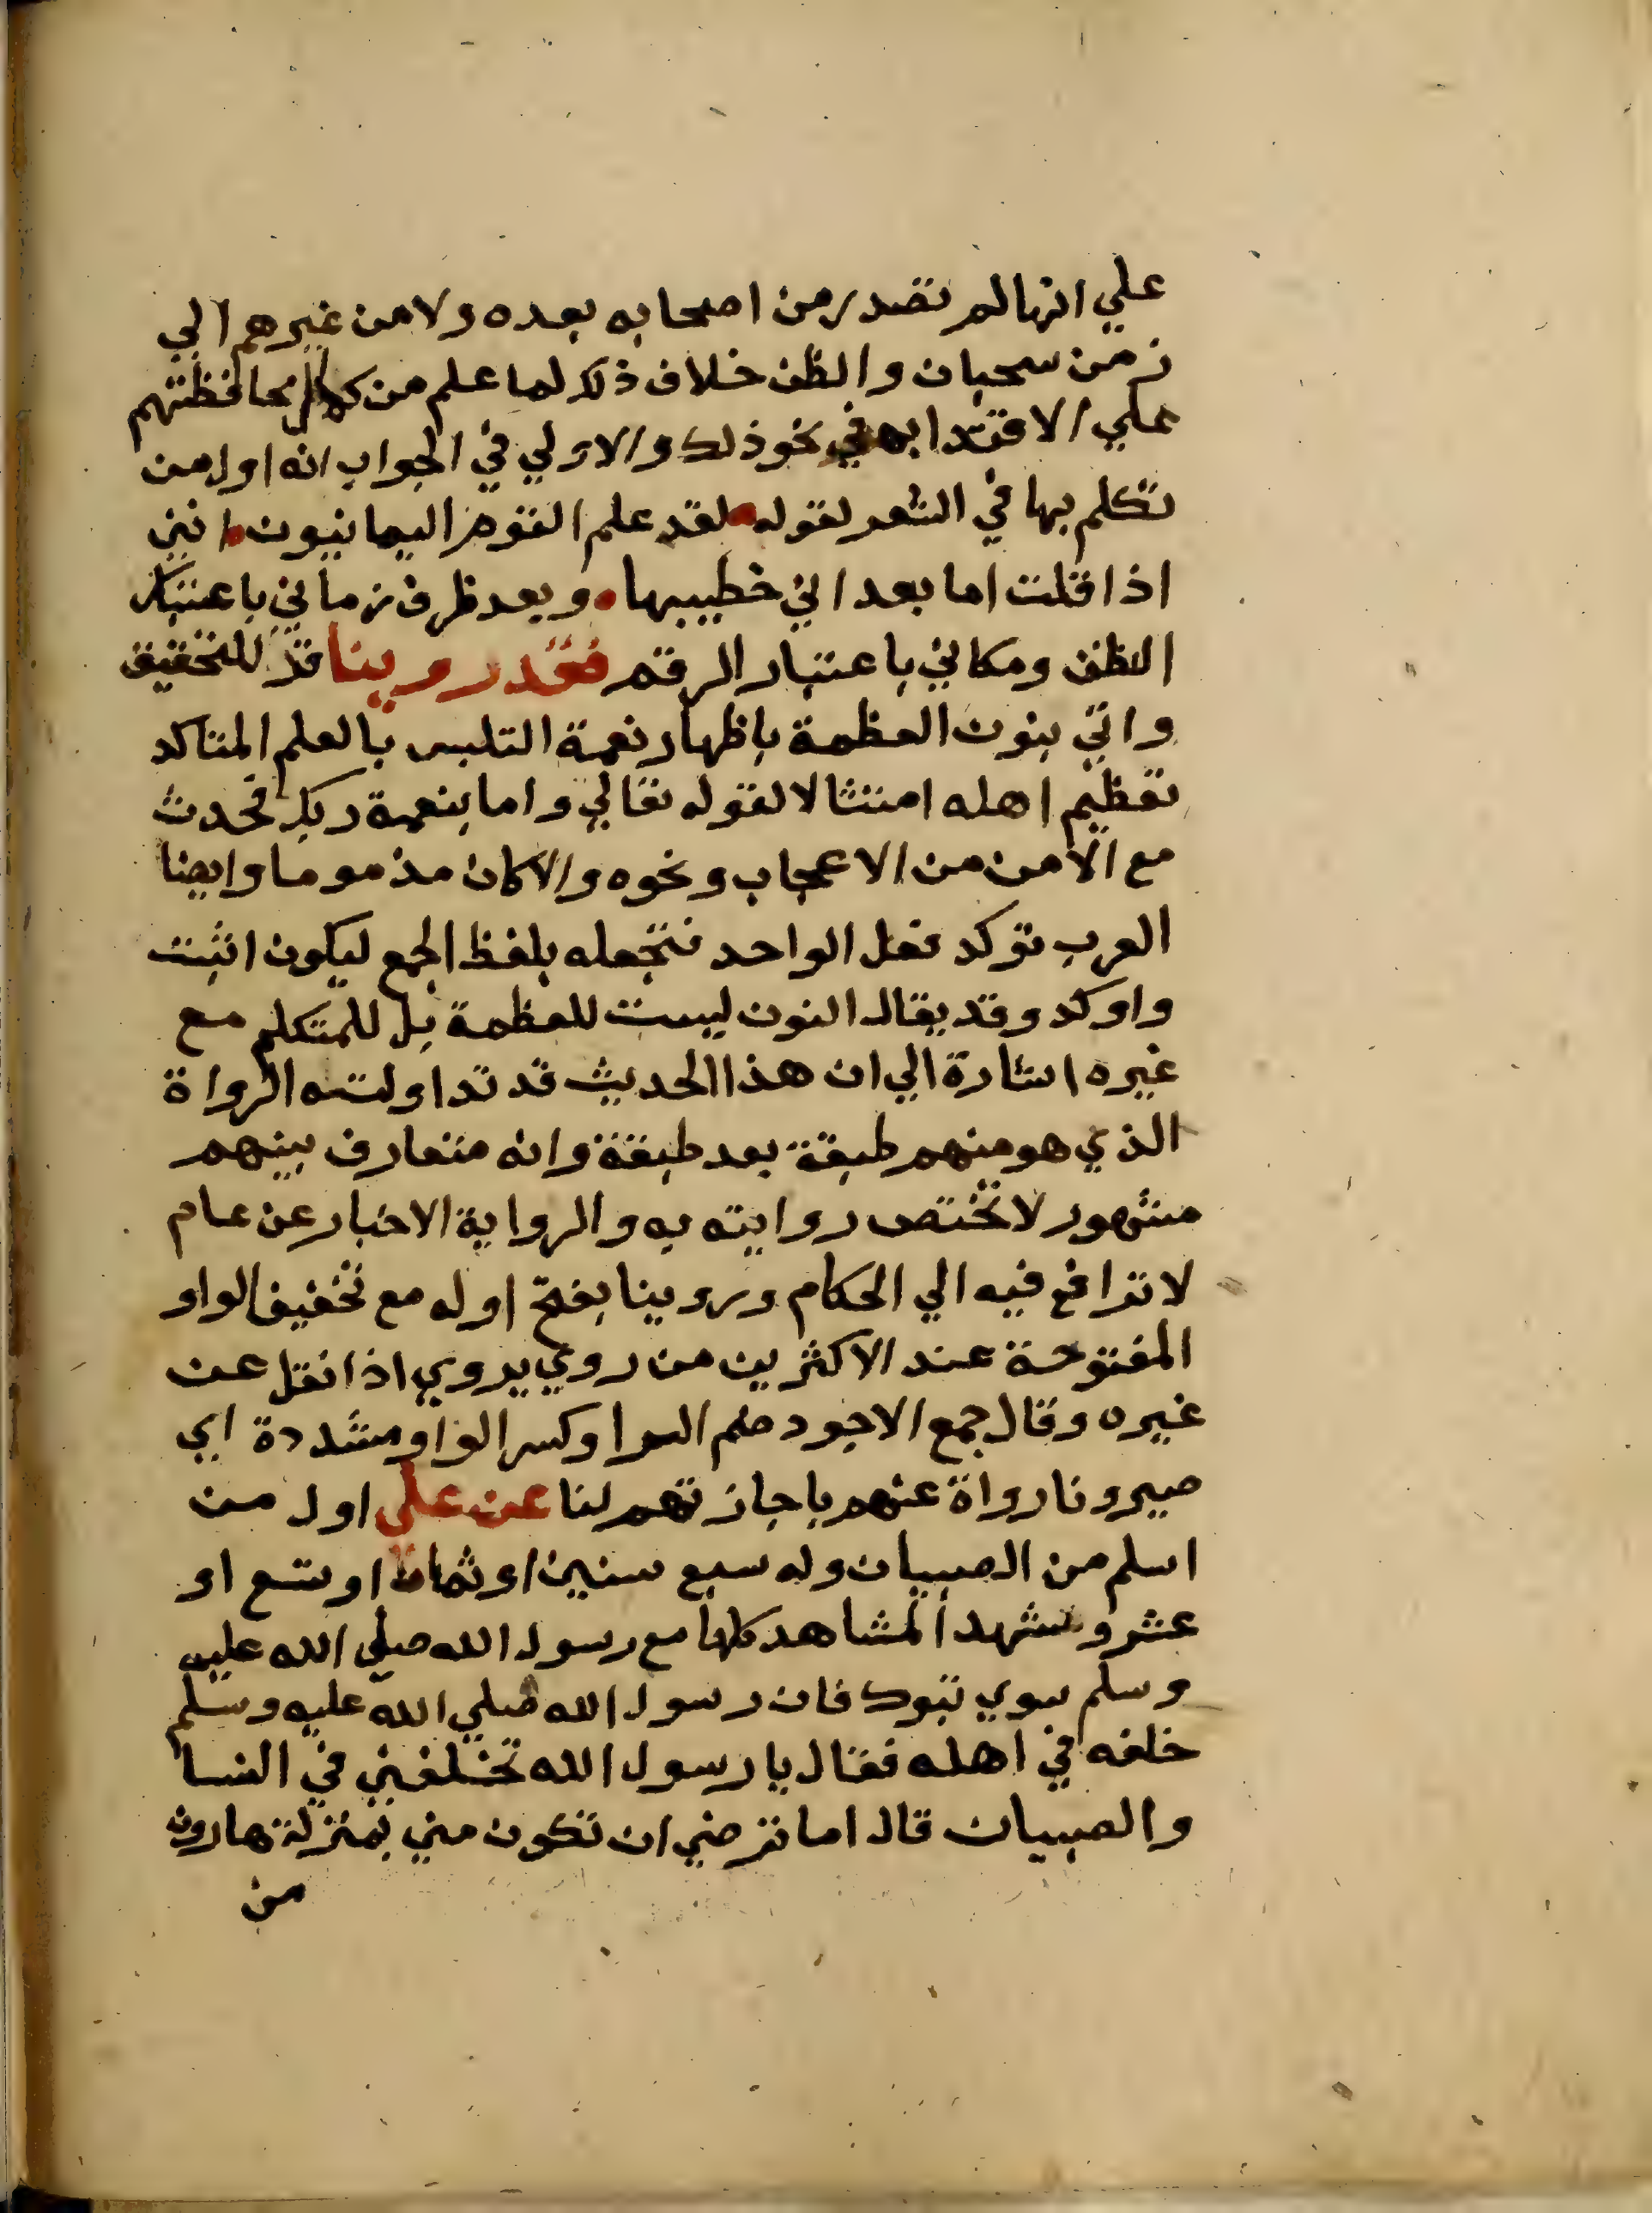 علي انها لم تصدر من اصحابه بعده ولا من غيرهم الي
زمن سحبان والظن خلاف ذلك لما علم من كمال محافظتهم
علي الاقتدا به في نحو ذلك والاولي في الجواب انه اول من
تكلم بها في الشعر لقوله لقد علم القوم اليمانيون انني
اذا قلت اما بعد اني خطيبها وبعد ظرف زماني باعتبار
اللفظ ومكاني باعتبار الرقم فقد روينا قد للتحقيق
واتي بنون العظمة باظهار نعمة التلبس بالعلم المتاكد
تعظيم اهله امتثالا لقوله تعالي واما بنعمة ربك فحدث
مع الامن من الاعجاب ونحوه والا كان مذموما وايضا
العرب توكد فعل الواحد فتجعله بلفظ الجمع ليكون اثبت
واوكد وقد يقال النون ليست للعظمة بل للمتكلم مع
غيره اشارة الي ان هذا الحديث قد تداولته الرواة
الذي هو منهم طبقة بعد طبقة وانه متعارف بينهم
مشهور لا تختص روايته به والرواية الاخبار عن عام
لا ترافع فيه الي الحكام وروينا بفتح اوله مع تخفيف الواو
المفتوحة عند الاكثرين من روي يروي اذا نقل عن
غيره وقال جمع الاجود ضم الرا وكسر الواو مشددة اي
صيرونا رواة عنهم باجازتهم لنا عن علي اول من
اسلم من الصبيان وله سبع سنين او ثمان او تسع او
عشر وشهد المشاهد كلها مع رسول الله صلي الله عليه
وسلم سوي تبوك فان رسول الله صلي الله عليه وسلم
خلفه في اهله فقال يا رسول الله تخلفني في النسا
والصبيان قال اما ترضي ان تكون مني بمنزلة هارون
من